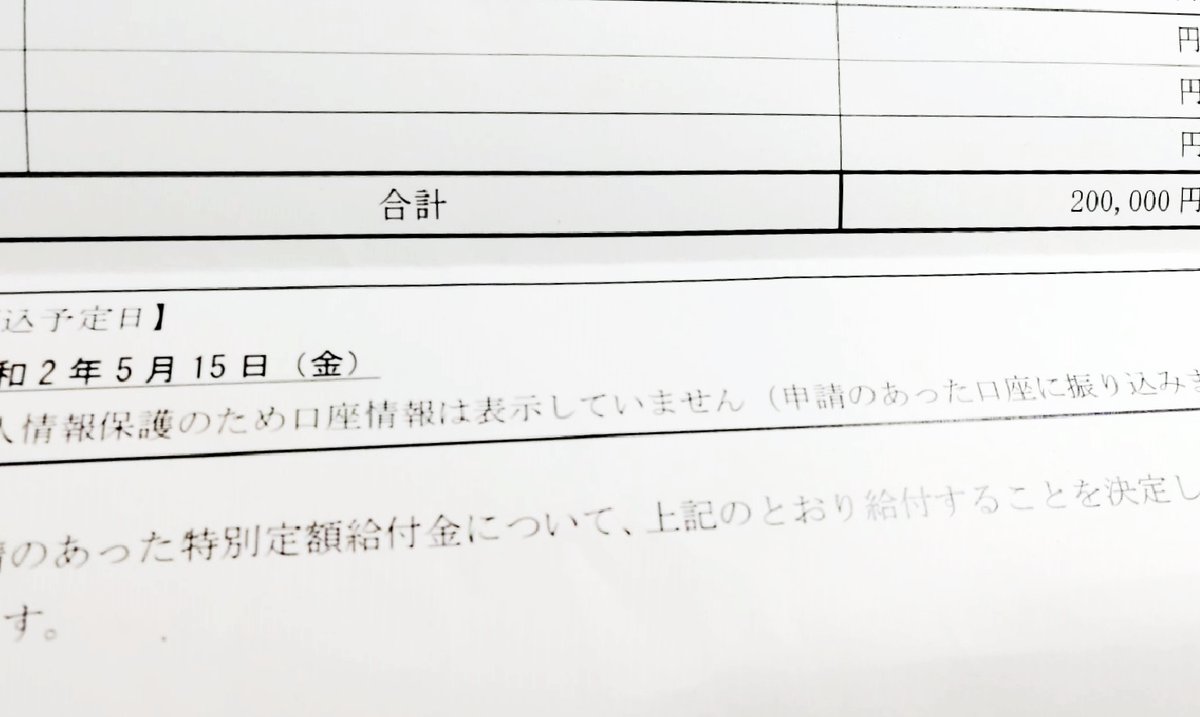 円
円
円
合計 200,000円
込予定日】
和2年5月15日（金）
人情報保護のため口座情報は表示していません（申請のあった口座に振り込みま
請のあった特別定額給付金について、上記のとおり給付することを決定し
す。